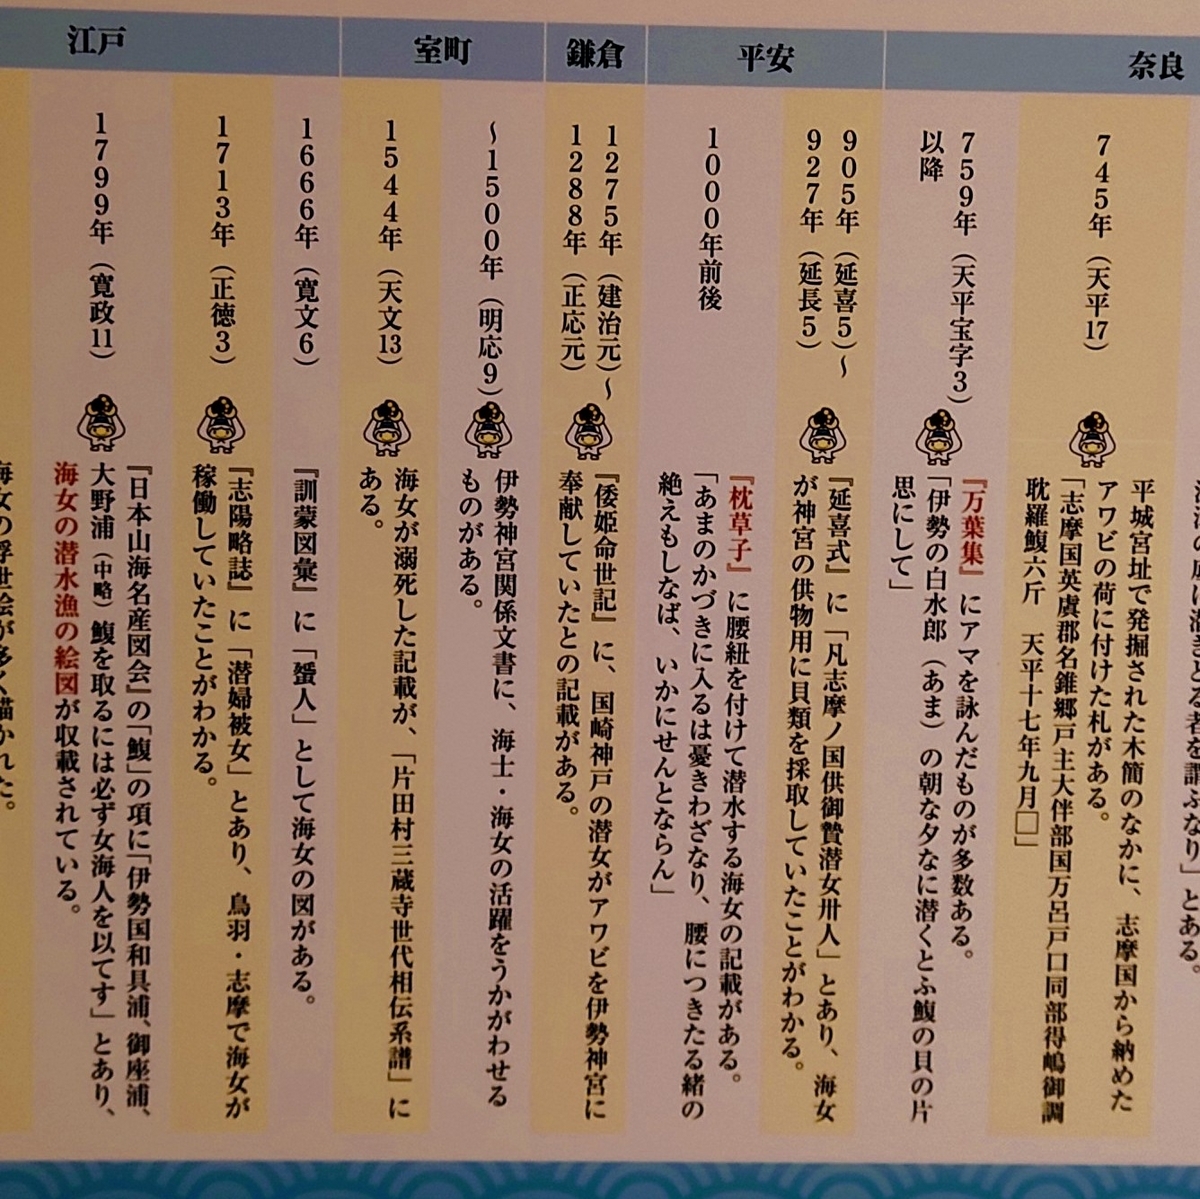 奈良
平安
鎌倉
室町
江戸
とある。
745年（天平17）
平城宮址で発掘された木簡のなかに、志摩国から納めた
アワビの荷に付けた札がある。
「志摩国英虞郡名錐郷戸主大伴部国万呂戸口同部得嶋御調
耽羅鰒六斤　天平十七年九月□」
759年（天平宝字3）
以降
『万葉集』にアマを詠んだものが多数ある。
「伊勢の白水郎（あま）の朝な夕なに潜くとふ鰒の貝の片
思にして」
905年（延喜5）～
927年（延長5）
『延喜式』に「凡志摩ノ国供御贄潜女卅人」とあり、海女
が神宮の供物用に貝類を採取していたことがわかる。
1000年前後
『枕草子』に腰紐を付けて潜水する海女の記載がある。
「あまのかづきに入るは憂きわざなり、腰につきたる緒の
絶えもしなば、いかにせんとならん」
1275年（建治元）～
1288年（正応元）
『倭姫命世記』に、国崎神戸の潜女がアワビを伊勢神宮に
奉献していたとの記載がある。
～1500年（明応9）
伊勢神宮関係文書に、海士・海女の活躍をうかがわせる
ものがある。
1544年（天文13）
海女が溺死した記載が、「片田村三蔵寺世代相伝系譜」に
ある。
1666年（寛文6）
『訓蒙図彙』に「蜑人」として海女の図がある。
1713年（正徳3）
『志陽略誌』に「潜婦被女」とあり、鳥羽・志摩で海女が
稼働していたことがわかる。
1799年（寛政11）
『日本山海名産図会』の「鰒」の項に「伊勢国和具浦、御座浦、
大野浦（中略）鰒を取るには必ず女海人を以てす」とあり、
海女の潜水漁の絵図が収載されている。
海女の浮世絵が多く描かれた。